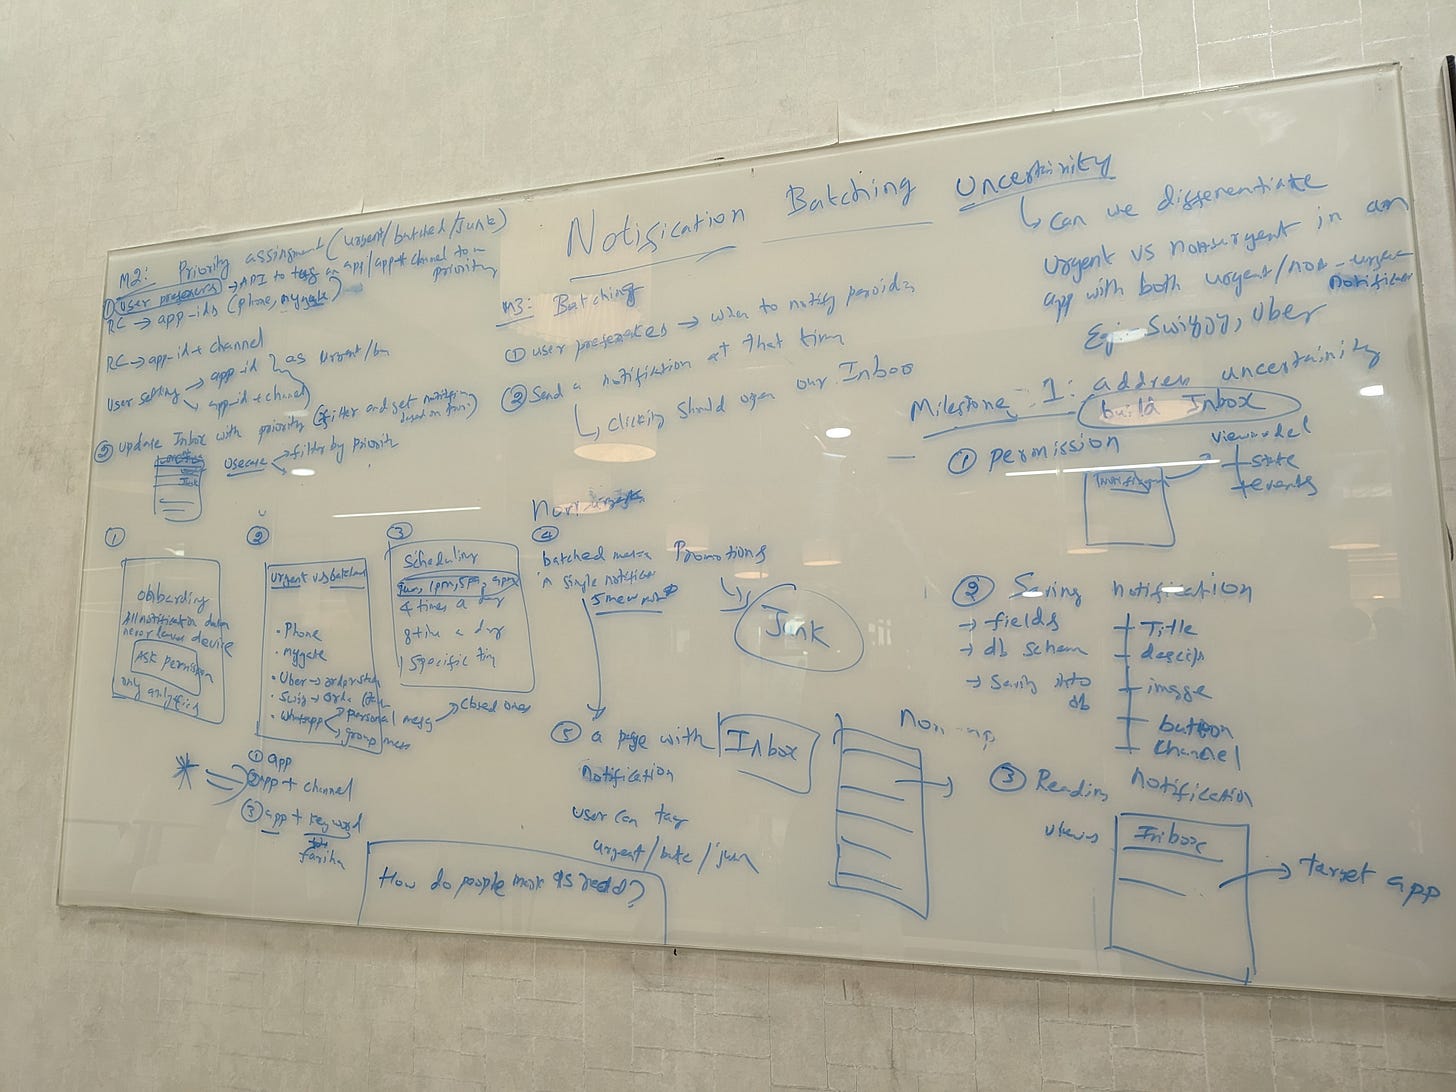 Notification Batching
Uncertainity
↳ Can we differentiate
urgent vs non-urgent in an
app with both urgent/non-urgent
notificat
Eg: Swiggy, Uber
Milestone 1: address uncertainity
build Inbox
① permission
viewmodel
state
events
② Saving notification
→ fields
→ db schem
→ Saving into
db
Title
descrip
image
button
Channel
③ Reading notification
views
Inbox
→ target app
M2: Priority assignment (urgent/batched/Junk)
① User preferences → API to tag an app/app+channel to a
priority
RC → app-ids (phone, mygate)
RC → app-id + channel
User setting → app-id
app-id + channel
as urgent/
② update Inbox with priority (filter and get notific
based on
usecase filter by priority
M3: Batching
① user preferences → when to notify periodic
② Send a notification at that time
↳ clicking should open our Inbox
①
onboarding
All notification data
never leaves device
Ask permission
only analytics
②
urgent vs batched
• Phone
• mygate
• Uber →
• Swig → orde
• Whatsapp personal messg → Closed ones
group mess
③
Scheduling
9am, 1pm, 5pm, 9pm
4 times a day
8 time a day
1 specific tim
Non-urgent
④
batched messa
in single notificati
5 new
Promotions
Junk
⑤ a page with Inbox
notification
user can tag
urgent/batc/jun
* ⇒ ① app
② app + channel
③ app + keyword
How do people mark as read?